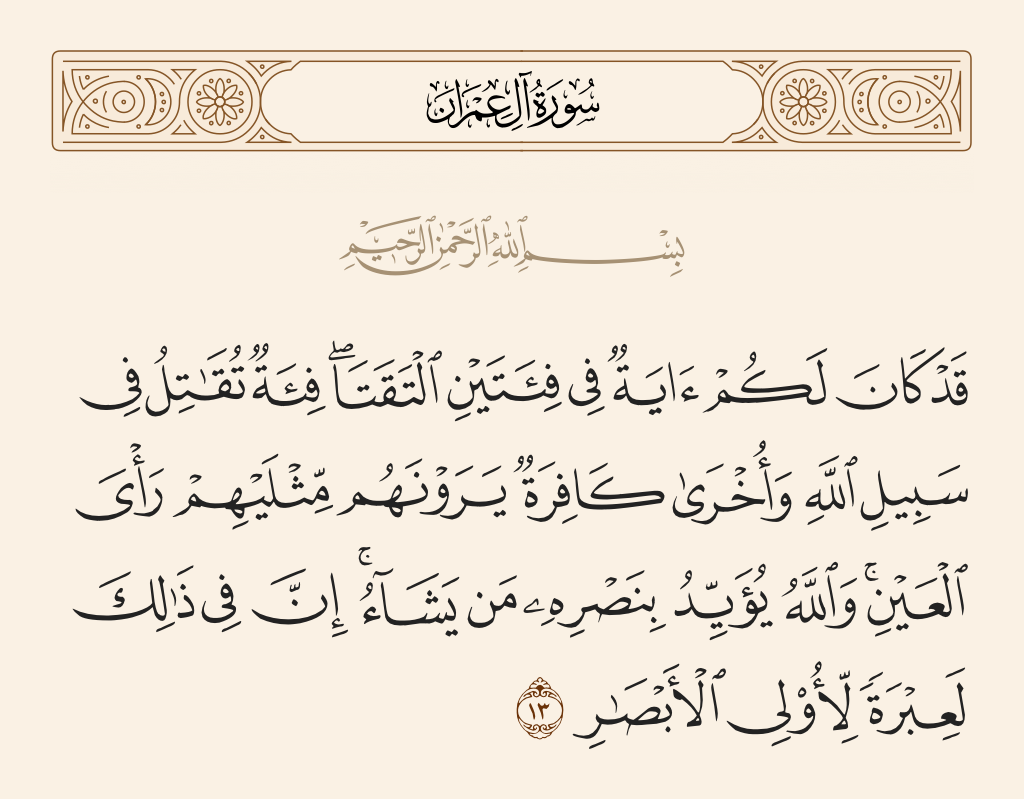 سُورَةُ آلِ عِمْرَان
بِسْمِ ٱللَّهِ ٱلرَّحْمَٰنِ ٱلرَّحِيمِ
قَدْ كَانَ لَكُمْ ءَايَةٌ فِى فِئَتَيْنِ ٱلْتَقَتَا ۖ فِئَةٌ تُقَـٰتِلُ فِى
سَبِيلِ ٱللَّهِ وَأُخْرَىٰ كَافِرَةٌ يَرَوْنَهُم مِّثْلَيْهِمْ رَأْىَ
ٱلْعَيْنِ ۚ وَٱللَّهُ يُؤَيِّدُ بِنَصْرِهِۦ مَن يَشَآءُ ۚ إِنَّ فِى ذَٰلِكَ
لَعِبْرَةً لِّأُو۟لِى ٱلْأَبْصَـٰرِ ١٣